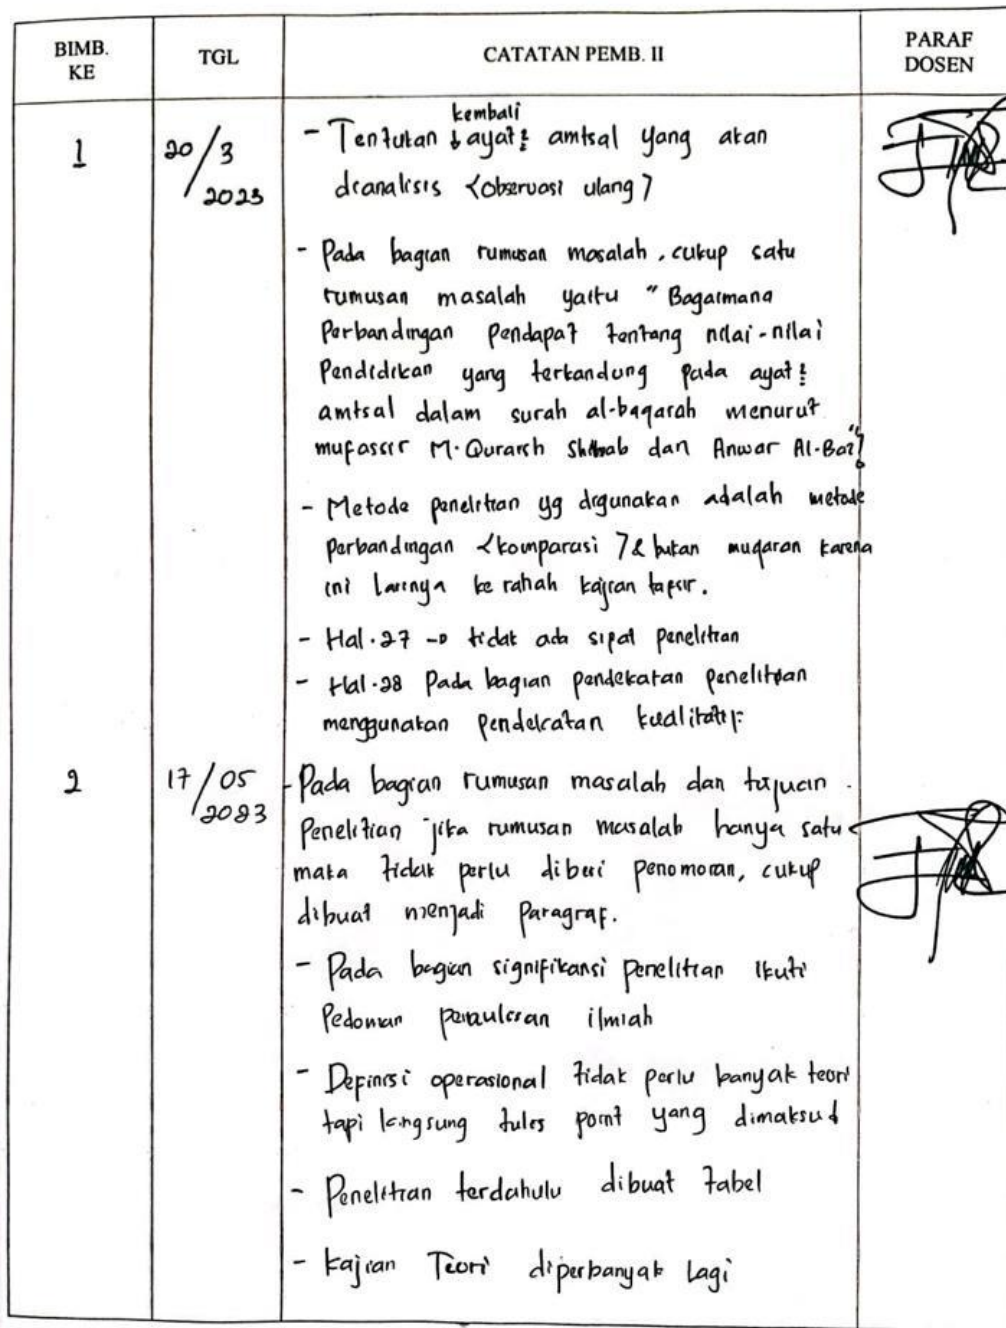 BIMB. KE
TGL
CATATAN PEMB. II
PARAF DOSEN
1
20/3 2023
kembali
- Tentukan ayat² amtsal yang akan
dianalisis (observasi ulang)
- Pada bagian rumusan masalah, cukup satu
rumusan masalah yaitu "Bagaimana
Perbandingan Pendapat tentang nilai-nilai
Pendidikan yang terkandung pada ayat²
amtsal dalam surah al-baqarah menurut
mufassir M. Quraish Shihab dan Anwar Al-Baz"?
- Metode penelitian yg digunakan adalah metode
perbandingan (komparasi) & bukan muqaran karena
ini larinya ke rahah kajian tafsir.
- Hal.27 → tidak ada sifat penelitian
- Hal.28 Pada bagian pendekatan penelitian
menggunakan pendekatan kualitatif
2
17/05 2023
- Pada bagian rumusan masalah dan tujuan
Penelitian jika rumusan masalah hanya satu
maka tidak perlu diberi penomoran, cukup
dibuat menjadi Paragraf.
- Pada bagian signifikansi penelitian ikuti
Pedoman penulisan ilmiah
- Definisi operasional tidak perlu banyak teori
tapi langsung tulis point yang dimaksud
- Penelitian terdahulu dibuat tabel
- Kajian Teori diperbanyak lagi